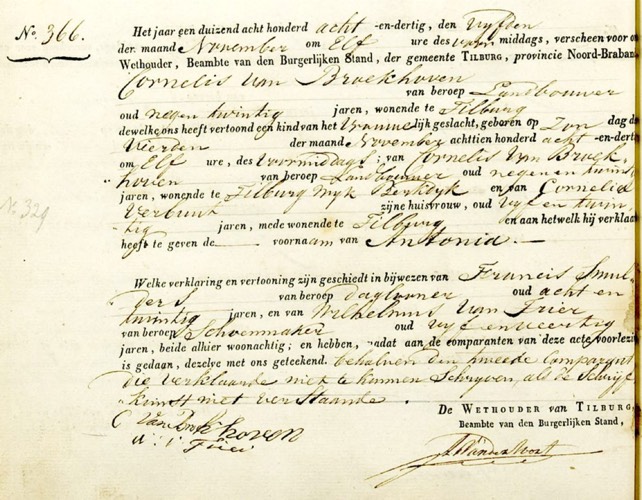 No. 366.
Het jaar een duizend acht honderd acht -en-dertig, den vyfden
der maand November om Elf ure des voor middags, verscheen voor on
Wethouder, Beambte van den Burgerlijken Stand, der gemeente TILBURG, provincie Noord-Braban
Cornelis van Broekhoven
van beroep Landbouwer
oud negen twintig jaren, wonende te Tilburg
dewelke ons heeft vertoond een kind van het Vrouwelijk geslacht, geboren op Zon dag de
Vierden der maand November achttien honderd acht -en-derti
om Elf ure, des Voormiddags; van Cornelis van Broek
hoven van beroep Landbouwer oud negen en twint
jaren, wonende te Tilburg Wyk Berkdyk en van Cornelia
Verbunt zijne huisvrouw, oud Vyf en twin
tig jaren, mede wonende te Tilburg, en aan hetwelk hij verklaa
heeft te geven de voornaam van Antonia.
No. 329
Welke verklaring en vertooning zijn geschied in bijwezen van Francis Smul
ders van beroep daglooner oud acht en
twintig jaren, en van Wilhelmus van Trier
van beroep Schoenmaker oud vyf en veertig
jaren, beide alhier woonachtig; en hebben, nadat aan de comparanten van deze acte voorlezin
is gedaan, dezelve met ons geteekend. behalven den tweede Comparant
die verklaarde niet te kunnen Schryven, als de Schryf
kunst niet verstaande.
De WETHOUDER van TILBURG,
Beambte van den Burgerlijken Stand,
C van Broekhoven